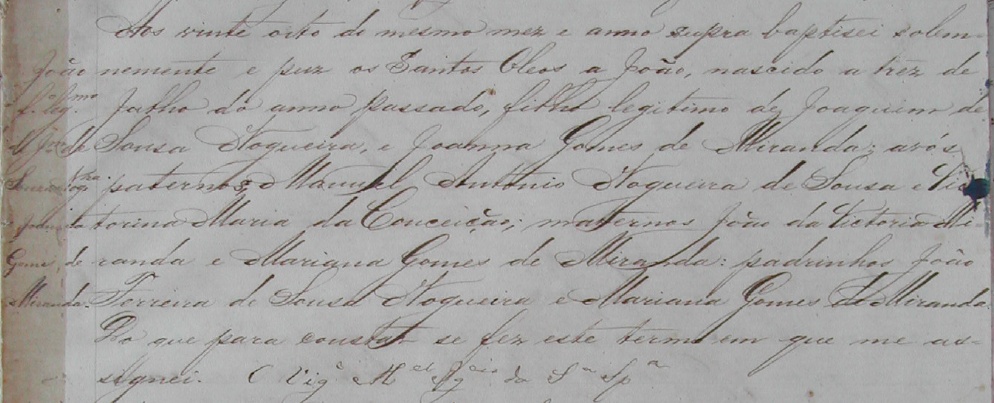 Aos vinte oito do mesmo mez e anno supra baptisei solem-
João nemente e puz os Santos Oleos a João, nascido a trez de
Julho do anno passado, filho legitimo de Joaquim de
Sousa Nogueira, e Joanna Gomes de Miranda; avós
paternos, Manuel Antonio Nogueira de Sousa e Vic
torina Maria da Conceição; maternos João da Victoria Mi-
Gomes de randa e Marianna Gomes de Miranda: padrinhos João
Miranda. Ferreira de Sousa Nogueira e Mariana Gomes de Miranda.
Do que para constar se fez este termo em que me as-
signei. O Vigº Mel